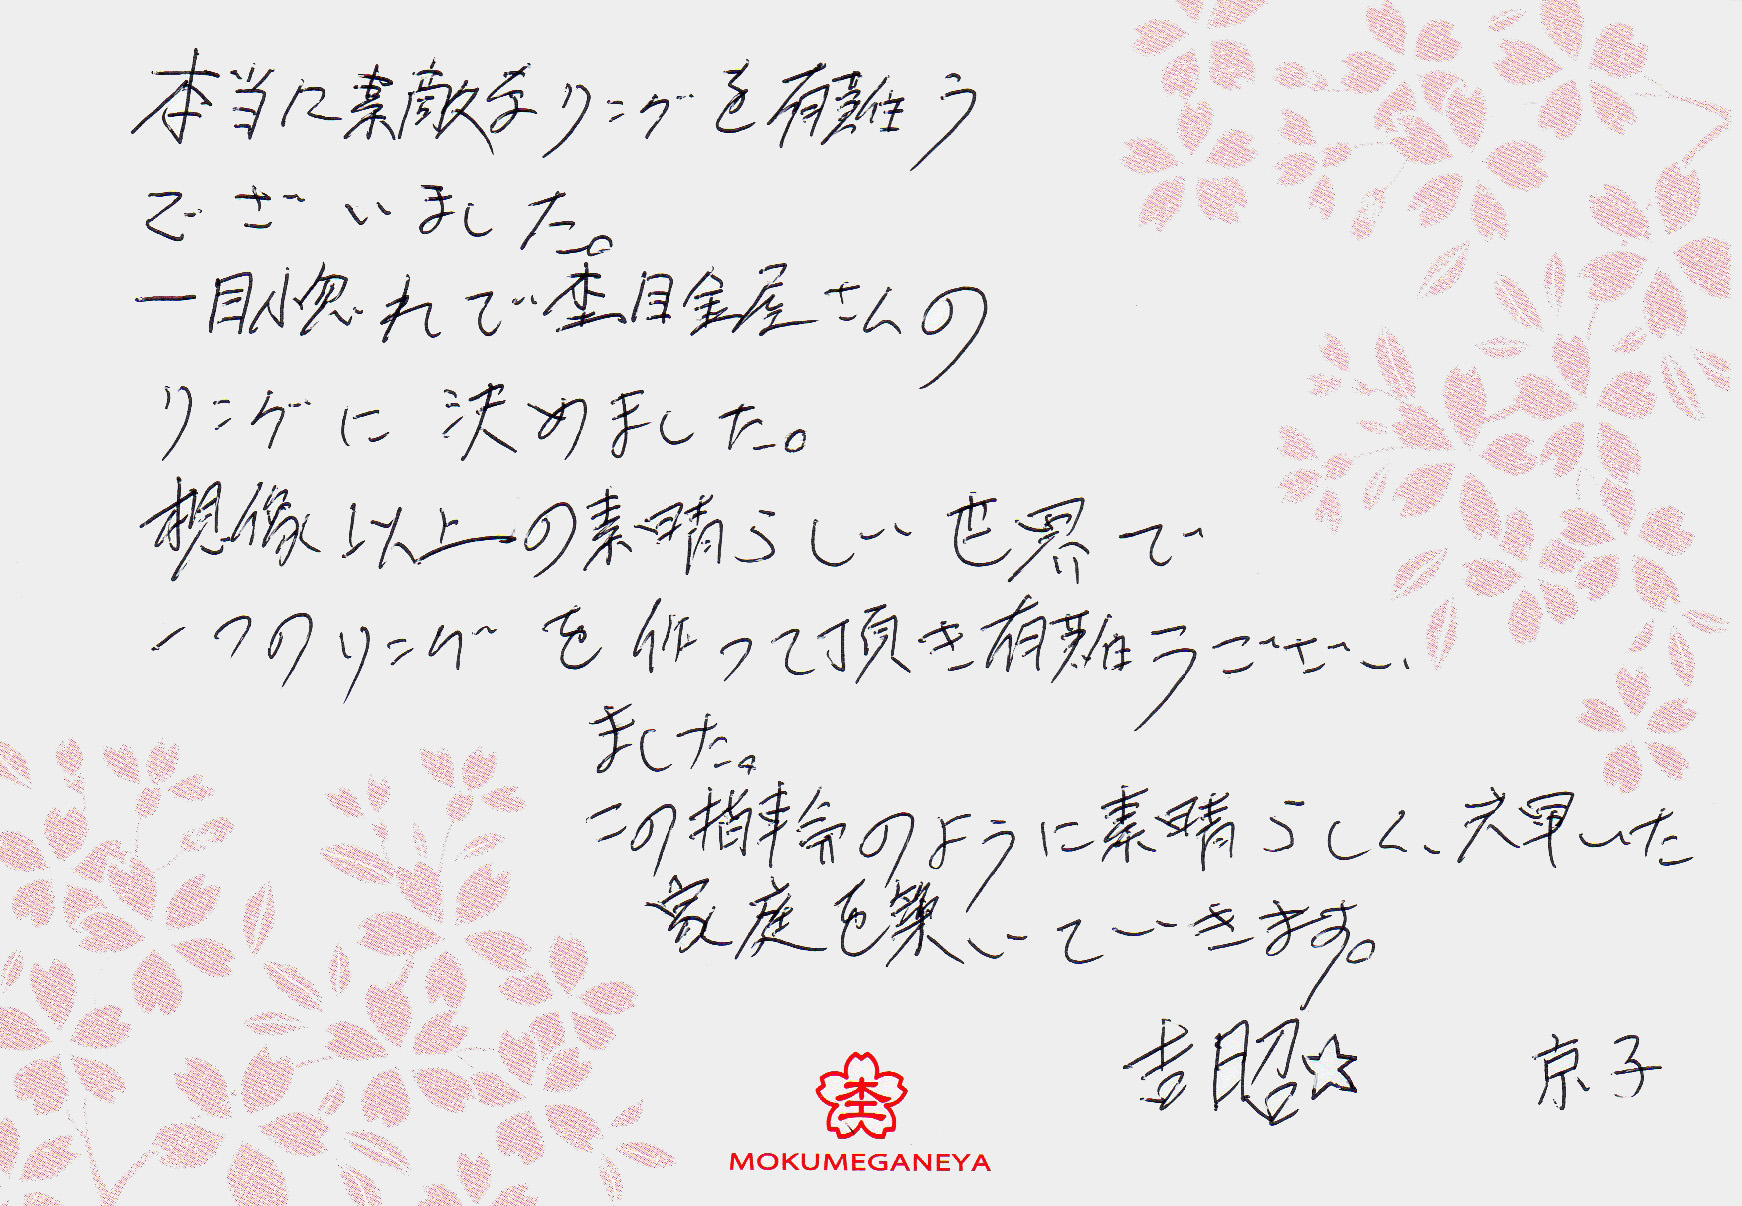 本当に素敵なリングを有難う
ございました。
一目惚れで杢目金屋さんの
リングに決めました。
想像以上の素晴らしい世界で
一つのリングを作って頂き有難うござい
ました。
この指輪のように素晴らしく、輝いた
家庭を築いていきます。
吉昭☆ 京子
杢
MOKUMEGANEYA